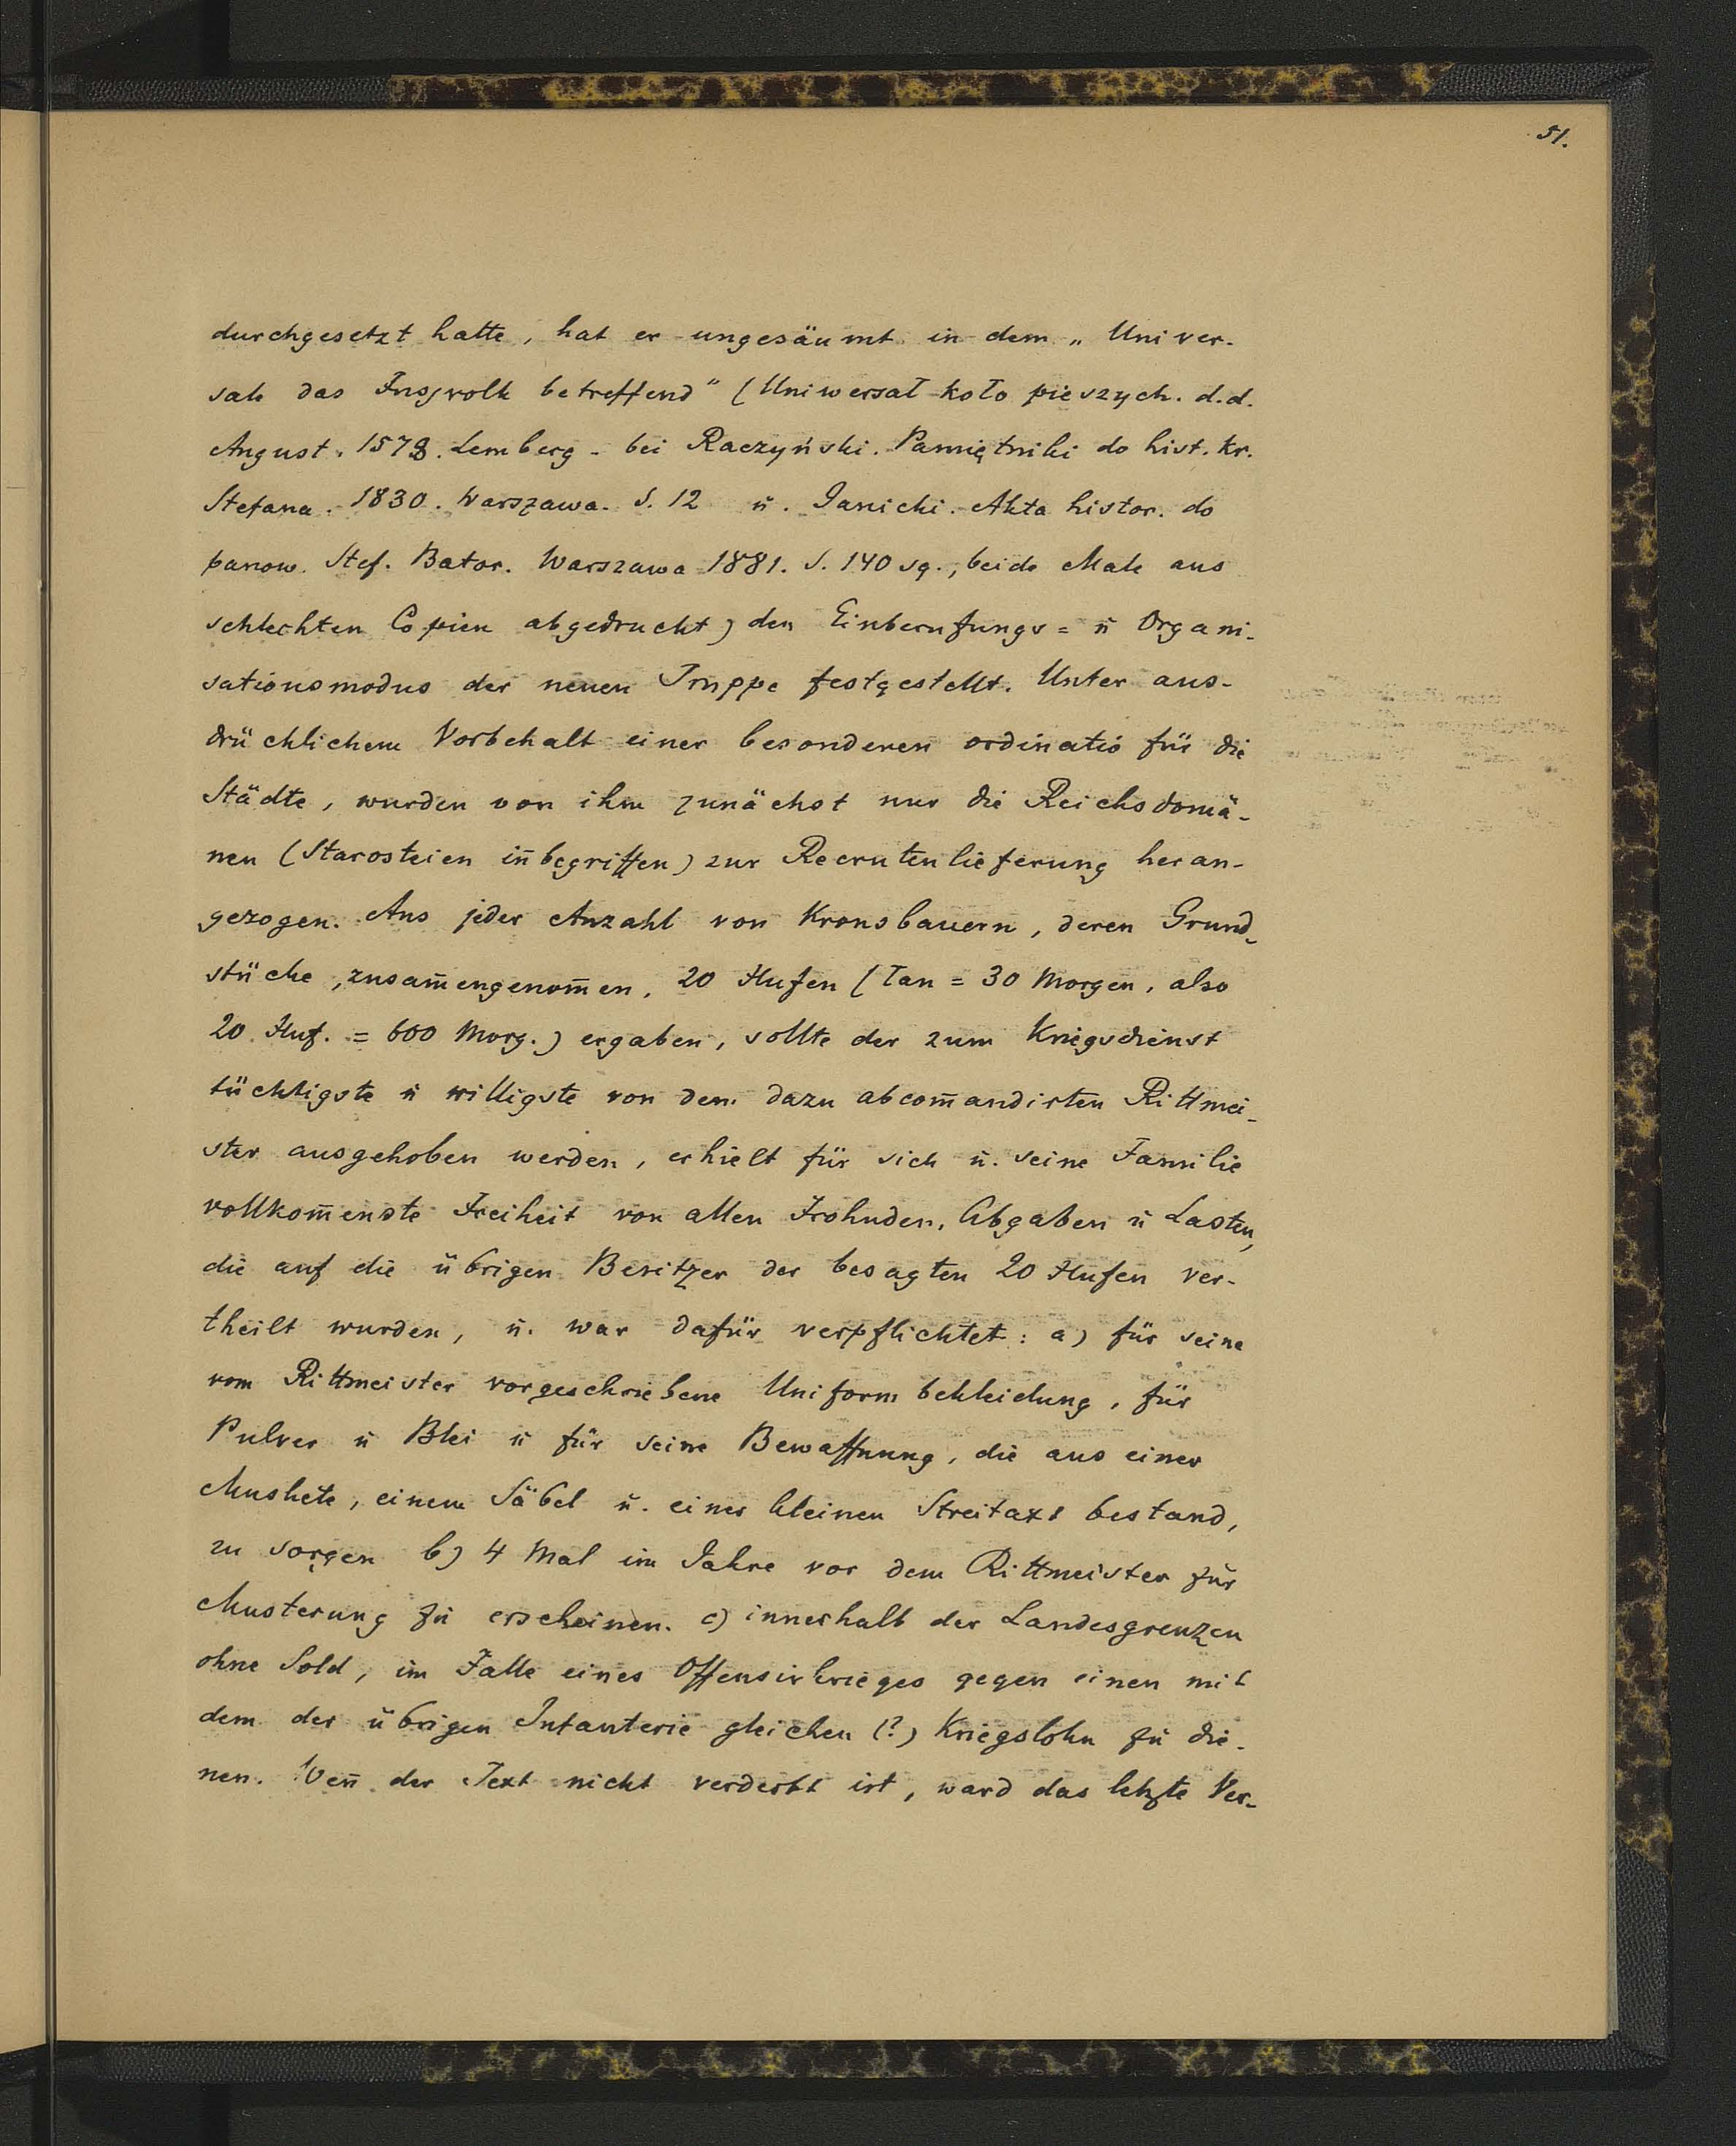 51.
durchgesetzt hatte, hat er ungesäumt in dem „Univer-
sale das Fussvolk betreffend" (Uniwersał koło pieszych. d.d.
August. 1578. Lemberg - bei Raczyński. Pamiętniki do hist. kr.
Stefana. 1830. Warszawa. S. 12 u. Janicki. Akta histor. do
panow. Stef. Bator. Warszawa 1881. S. 140 sq., beide Male aus
schlechten Copien abgedruckt) den Einberufungs= u Organi-
sationsmodus der neuen Truppe festgestellt. Unter aus-
drücklichem Vorbehalt einer besonderen ordinatio für die
Städte, wurden von ihm zunächst nur die Reichsdomä-
nen (Starosteien iñbegriffen) zur Recrutenlieferung heran-
gezogen. Aus jeder Anzahl von Kronsbauern, deren Grund-
stücke, zusam̄engenom̄en, 20 Hufen (łan = 30 Morgen, also
20 Huf. = 600 Morg.) ergaben, sollte der zum Kriegsdienst
tüchtigste u willigste von dem dazu abcom̄andirten Rittmei-
ster ausgehoben werden, erhielt für sich u. seine Familie
vollkom̄enste Freiheit von allen Frohnden, Abgaben u Lasten,
die auf die übrigen Besitzer der besagten 20 Hufen ver-
theilt wurden, u. war dafür verpflichtet: a) für seine
vom Rittmeister vorgeschriebene Uniformbekleidung, für
Pulver u Blei u für seine Bewaffnung, die aus einer
Muskete, einem Säbel u. einer kleinen Streitaxt bestand,
zu sorgen b) 4 Mal im Jahre vor dem Rittmeister zur
Musterung zu erscheinen. c) innerhalb der Landesgrenzen
ohne Sold, im Falle eines Offensivkrieges gegen einen mit
dem der übrigen Infanterie gleichen (?) Kriegslohn zu die-
nen. Weñ der Text nicht verderbt ist, ward das letzte Ver-